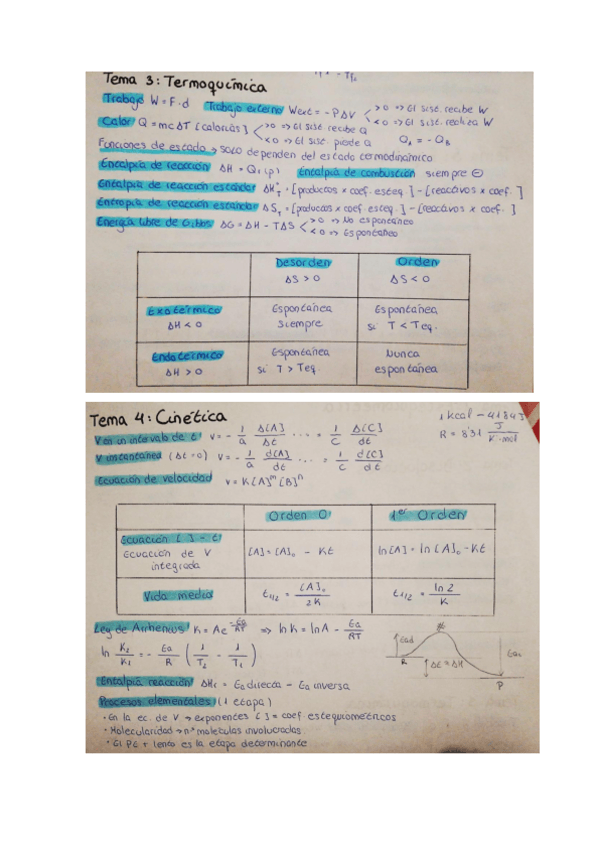 Tema 3: Termoquímica
Trabajo W = F·d Trabajo externo Wext = -PΔV
>0 => El sist. recibe W
<0 => El sist. realiza W
Calor Q = mcΔT [calorías]
>0 => El sist. recibe Q
<0 => El sist. pierde Q
QA = -QB
Funciones de estado → solo dependen del estado termodinámico
Entalpía de reacción ΔH = Qr (p) Entalpía de combustión siempre ⊖
Entalpía de reacción estándar ΔH°T = [productos x coef. esteq.] - [reactivos x coef.]
Entropía de reacción estándar ΔST = [productos x coef. esteq.] - [reactivos x coef.]
Energía libre de Gibbs ΔG = ΔH - TΔS
>0 => No espontáneo
<0 => Espontáneo
Desorden Orden
ΔS > 0 ΔS < 0
Exotérmico Espontánea Espontánea
ΔH < 0 Siempre si T < Teq.
Endotérmico Espontánea Nunca
ΔH > 0 si T > Teq. espontánea
Tema 4: Cinética
1 kcal - 4184 J
R = 8'31 J/K·mol
V en un intervalo de t v = - 1/a Δ[A]/Δt ... = 1/c Δ[C]/dt
V instantánea (Δt = 0) v = - 1/a d[A]/dt ... = 1/c d[C]/dt
Ecuación de velocidad v = K[A]^m [B]^n
Orden 0 1er Orden
Ecuación [ ] - t
Ecuación de V
integrada
[A] = [A]₀ - Kt ln[A] = ln[A]₀ - Kt
Vida media t1/2 = [A]₀/2K t1/2 = ln 2/K
Ley de Arrhenius K = Ae^(-Ea/RT) => ln K = ln A - Ea/RT
ln K2/K1 = - Ea/R (1/T2 - 1/T1)
Ead
R
ΔE = ΔH
P
Entalpía reacción ΔHr = Ea directa - Ea inversa
Procesos elementales (1 etapa)
· En la ec. de V → exponentes [ ] = coef. estequiométricos
· Molecularidad → nº moléculas involucradas
· El PE + lento es la etapa determinante